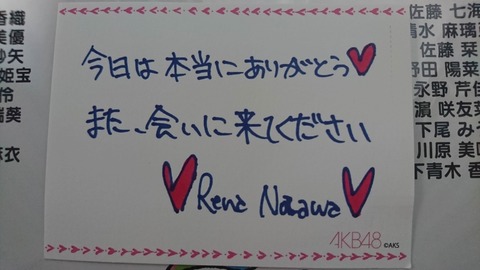 香織
美優
矢
姫宝
伶
瑞葵
麻衣
今日は本当にありがとう♥
また、会いに来てください
♥Rena Nozawa♥
AKB48 ©AKS
佐藤 七海
清水 麻璃
佐藤 栞
野田 陽菜
永野 芹佳
濵 咲友
下尾 み
川原 美
下青木 香